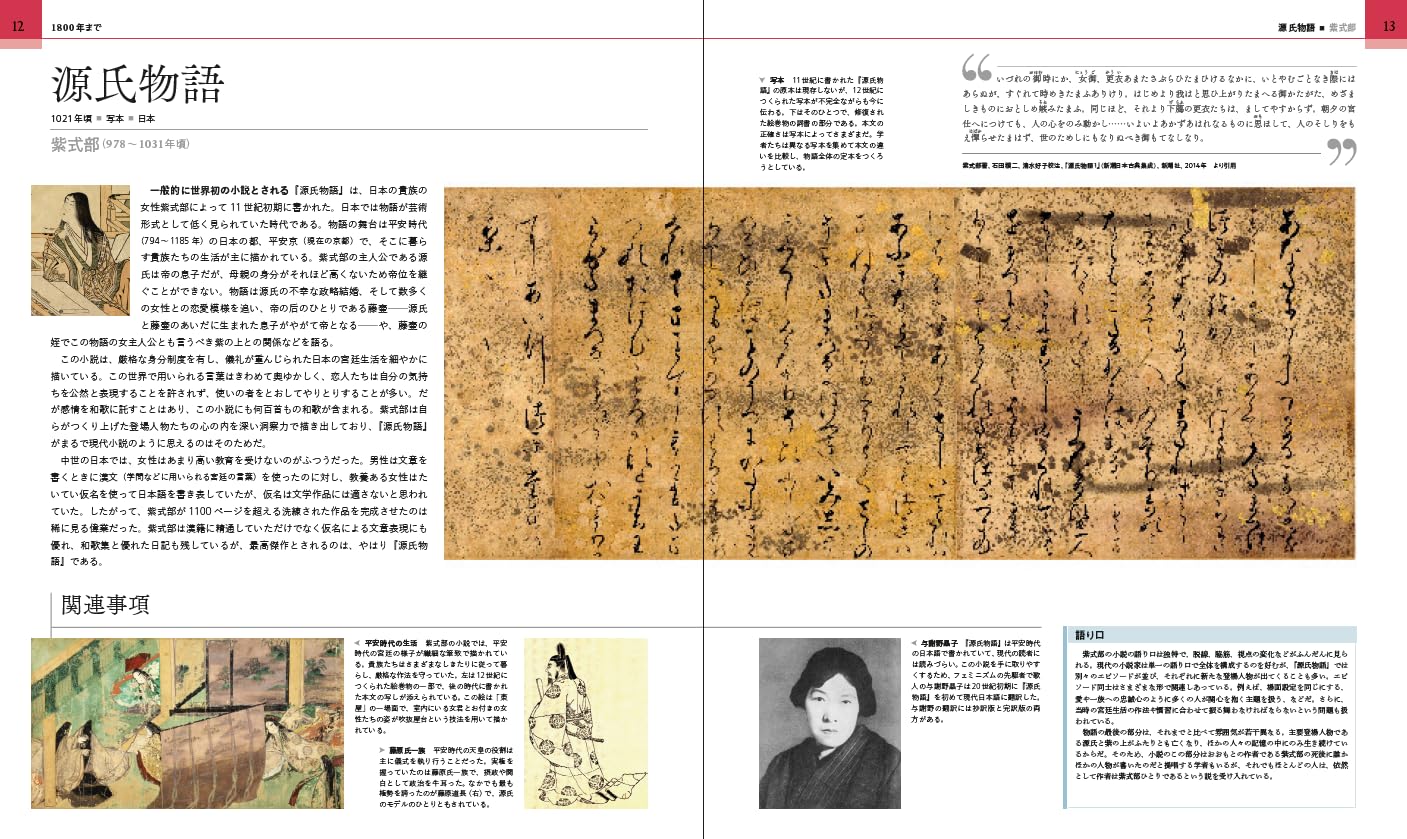 12
1800年まで
源氏物語 ■ 紫式部
13
源氏物語
1021年頃 ■ 写本 ■ 日本
紫式部(978～1031年頃)
一般的に世界初の小説とされる『源氏物語』は、日本の貴族の
女性紫式部によって11世紀初期に書かれた。日本では物語が芸術
形式として低く見られていた時代である。物語の舞台は平安時代
(794～1185年)の日本の都、平安京(現在の京都)で、そこに暮ら
す貴族たちの生活が主に描かれている。紫式部の主人公である源
氏は帝の息子だが、母親の身分がそれほど高くないため帝位を継
ぐことができない。物語は源氏の不幸な政略結婚、そして数多く
の女性との恋愛模様を追い、帝の后のひとりである藤壺──源氏
と藤壺のあいだに生まれた息子がやがて帝となる──や、藤壺の
姪でこの物語の女主人公とも言うべき紫の上との関係などを語る。
この小説は、厳格な身分制度を有し、儀礼が重んじられた日本の宮廷生活を細やかに
描いている。この世界で用いられる言葉はきわめて奥ゆかしく、恋人たちは自分の気持
ちを公然と表現することを許されず、使いの者をとおしてやりとりすることが多い。だ
が感情を和歌に託すことはあり、この小説にも何百首もの和歌が含まれる。紫式部は自
らがつくり上げた登場人物たちの心の内を深い洞察力で描き出しており、『源氏物語』
がまるで現代小説のように思えるのはそのためだ。
中世の日本では、女性はあまり高い教育を受けないのがふつうだった。男性は文章を
書くときに漢文(学問などに用いられる宮廷の言葉)を使ったのに対し、教養ある女性はた
いてい仮名を使って日本語を書き表していたが、仮名は文学作品には適さないと思われ
ていた。したがって、紫式部が1100ページを超える洗練された作品を完成させたのは
稀に見る偉業だった。紫式部は漢籍に精通していただけでなく仮名による文章表現にも
優れ、和歌集と優れた日記も残しているが、最高傑作とされるのは、やはり『源氏物
語』である。
▼ 写本 11世紀に書かれた『源氏物
語』の原本は現存しないが、12世紀に
つくられた写本が不完全ながらも今に
伝わる。下はそのひとつで、修復され
た絵巻物の詞書の部分である。本文の
正確さは写本によってさまざまだ。学
者たちは異なる写本を集めて本文の違
いを比較し、物語全体の定本をつくろ
うとしている。
“
いづれの御時にか、女御、更衣あまたさぶらひたまひけるなかに、いとやむごとなき際には
あらぬが、すぐれて時めきたまふありけり。はじめより我はと思ひ上がりたまへる御かたがた、めざま
しきものにおとしめ嫉みたまふ。同じほど、それより下﨟の更衣たちは、ましてやすからず。朝夕の宮
仕へにつけても、人の心をのみ動かし……いよいよあかずあはれなるものに思ほして、人のそしりをも
え憚らせたまはず、世のためしにもなりぬべき御もてなしなり。
”
紫式部著、石田穣二、清水好子校注、『源氏物語1』(新潮日本古典集成)、新潮社、2014年 より引用
関連事項
◀ 平安時代の生活 紫式部の小説では、平安
時代の宮廷の様子が繊細な筆致で描かれてい
る。貴族たちはさまざまなしきたりに従って暮
らし、厳格な作法を守っていた。左は12世紀に
つくられた絵巻物の一部で、後の時代に書かれ
た本文の写しが添えられている。この絵は「東
屋」の一場面で、室内にいる女君とお付きの女
性たちの姿が吹抜屋台という技法を用いて描か
れている。
▶ 藤原氏一族 平安時代の天皇の役割は
主に儀式を執り行うことだった。実権を
握っていたのは藤原氏一族で、摂政や関
白として政治を牛耳った。なかでも最も
権勢を誇ったのが藤原道長(右)で、源氏
のモデルのひとりともされている。
◀ 与謝野晶子 『源氏物語』は平安時代
の日本語で書かれていて、現代の読者に
は読みづらい。この小説を手に取りやす
くするため、フェミニズムの先駆者で歌
人の与謝野晶子は20世紀初期に『源氏
物語』を初めて現代日本語に翻訳した。
与謝野の翻訳には抄訳版と完訳版の両
方がある。
語り口
紫式部の小説の語り口は独特で、脱線、脇筋、視点の変化などがふんだんに見ら
れる。現代の小説家は単一の語り口で全体を構成するのを好むが、『源氏物語』では
別々のエピソードが並び、それぞれに新たな登場人物が出てくることも多い。エピ
ソード同士はさまざまな形で関連しあっている。例えば、場面設定を同じにする、
愛や一族への忠誠心のように多くの人が関心を抱く主題を扱う、などだ。さらに、
当時の宮廷生活の作法や慣習に合わせて振る舞わなければならないという問題も扱
われている。
物語の最後の部分は、それまでと比べて雰囲気が若干異なる。主要登場人物であ
る源氏と紫の上がふたりとも亡くなり、ほかの人々の記憶の中にのみ生き続けてい
るからだ。そのため、小説のこの部分はおおもとの作者である紫式部の死後に誰か
ほかの人物が書いたのだと提唱する学者もいるが、それでもほとんどの人は、依然
として作者は紫式部ひとりであるという説を受け入れている。